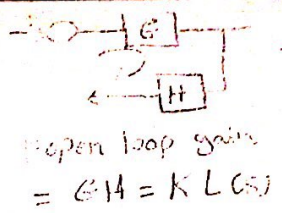 G
H
open loop gain
= GH = K L(s)